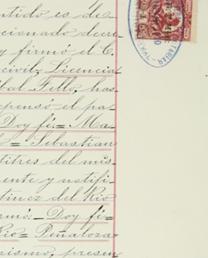 ntido es de
cionado decre
y firmó el C.
civil, Licencia
bal Tello, has
pensó el pa
Doy fé = Ma
= Sebastian
titres del mis
ente y notifi
tinez del Rio
rmó = Doy fé =
Rio = Peñaloza
nismo, presen